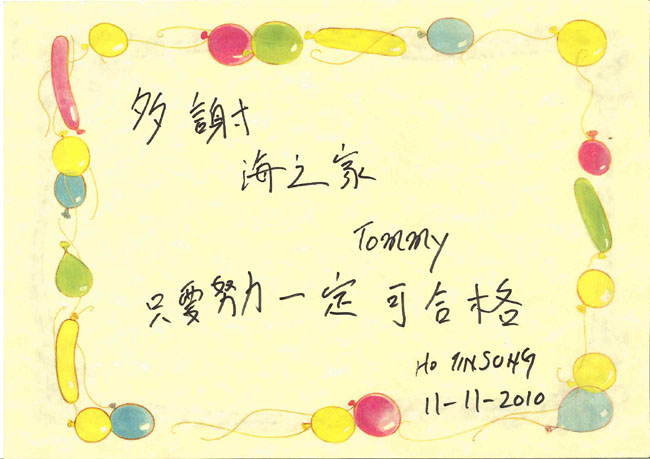 多謝
海之家
Tommy
只要努力一定可合格
Ho YIN SONG
11-11-2010